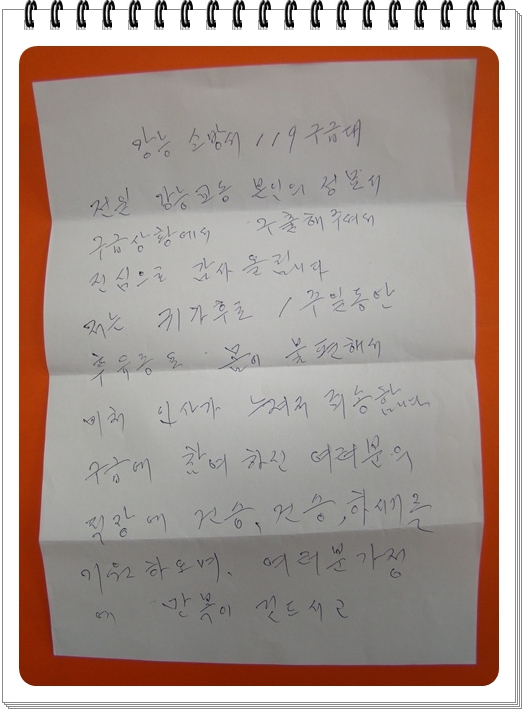 강능 소방서 119 구급대
전일 강능교동 본인의 정문서
구급상황에서 구출해주셔서
진심으로 감사 올립니다
저는 귀가후로 1주일동안
후유증도 몸이 불편해서
미처 인사가 느져저 죄송합니다
구급에 참여 하신 여러분의
직장에 건승, 건승, 하시기를
기원하오며, 여러분가정
에 만복이 깃드시고